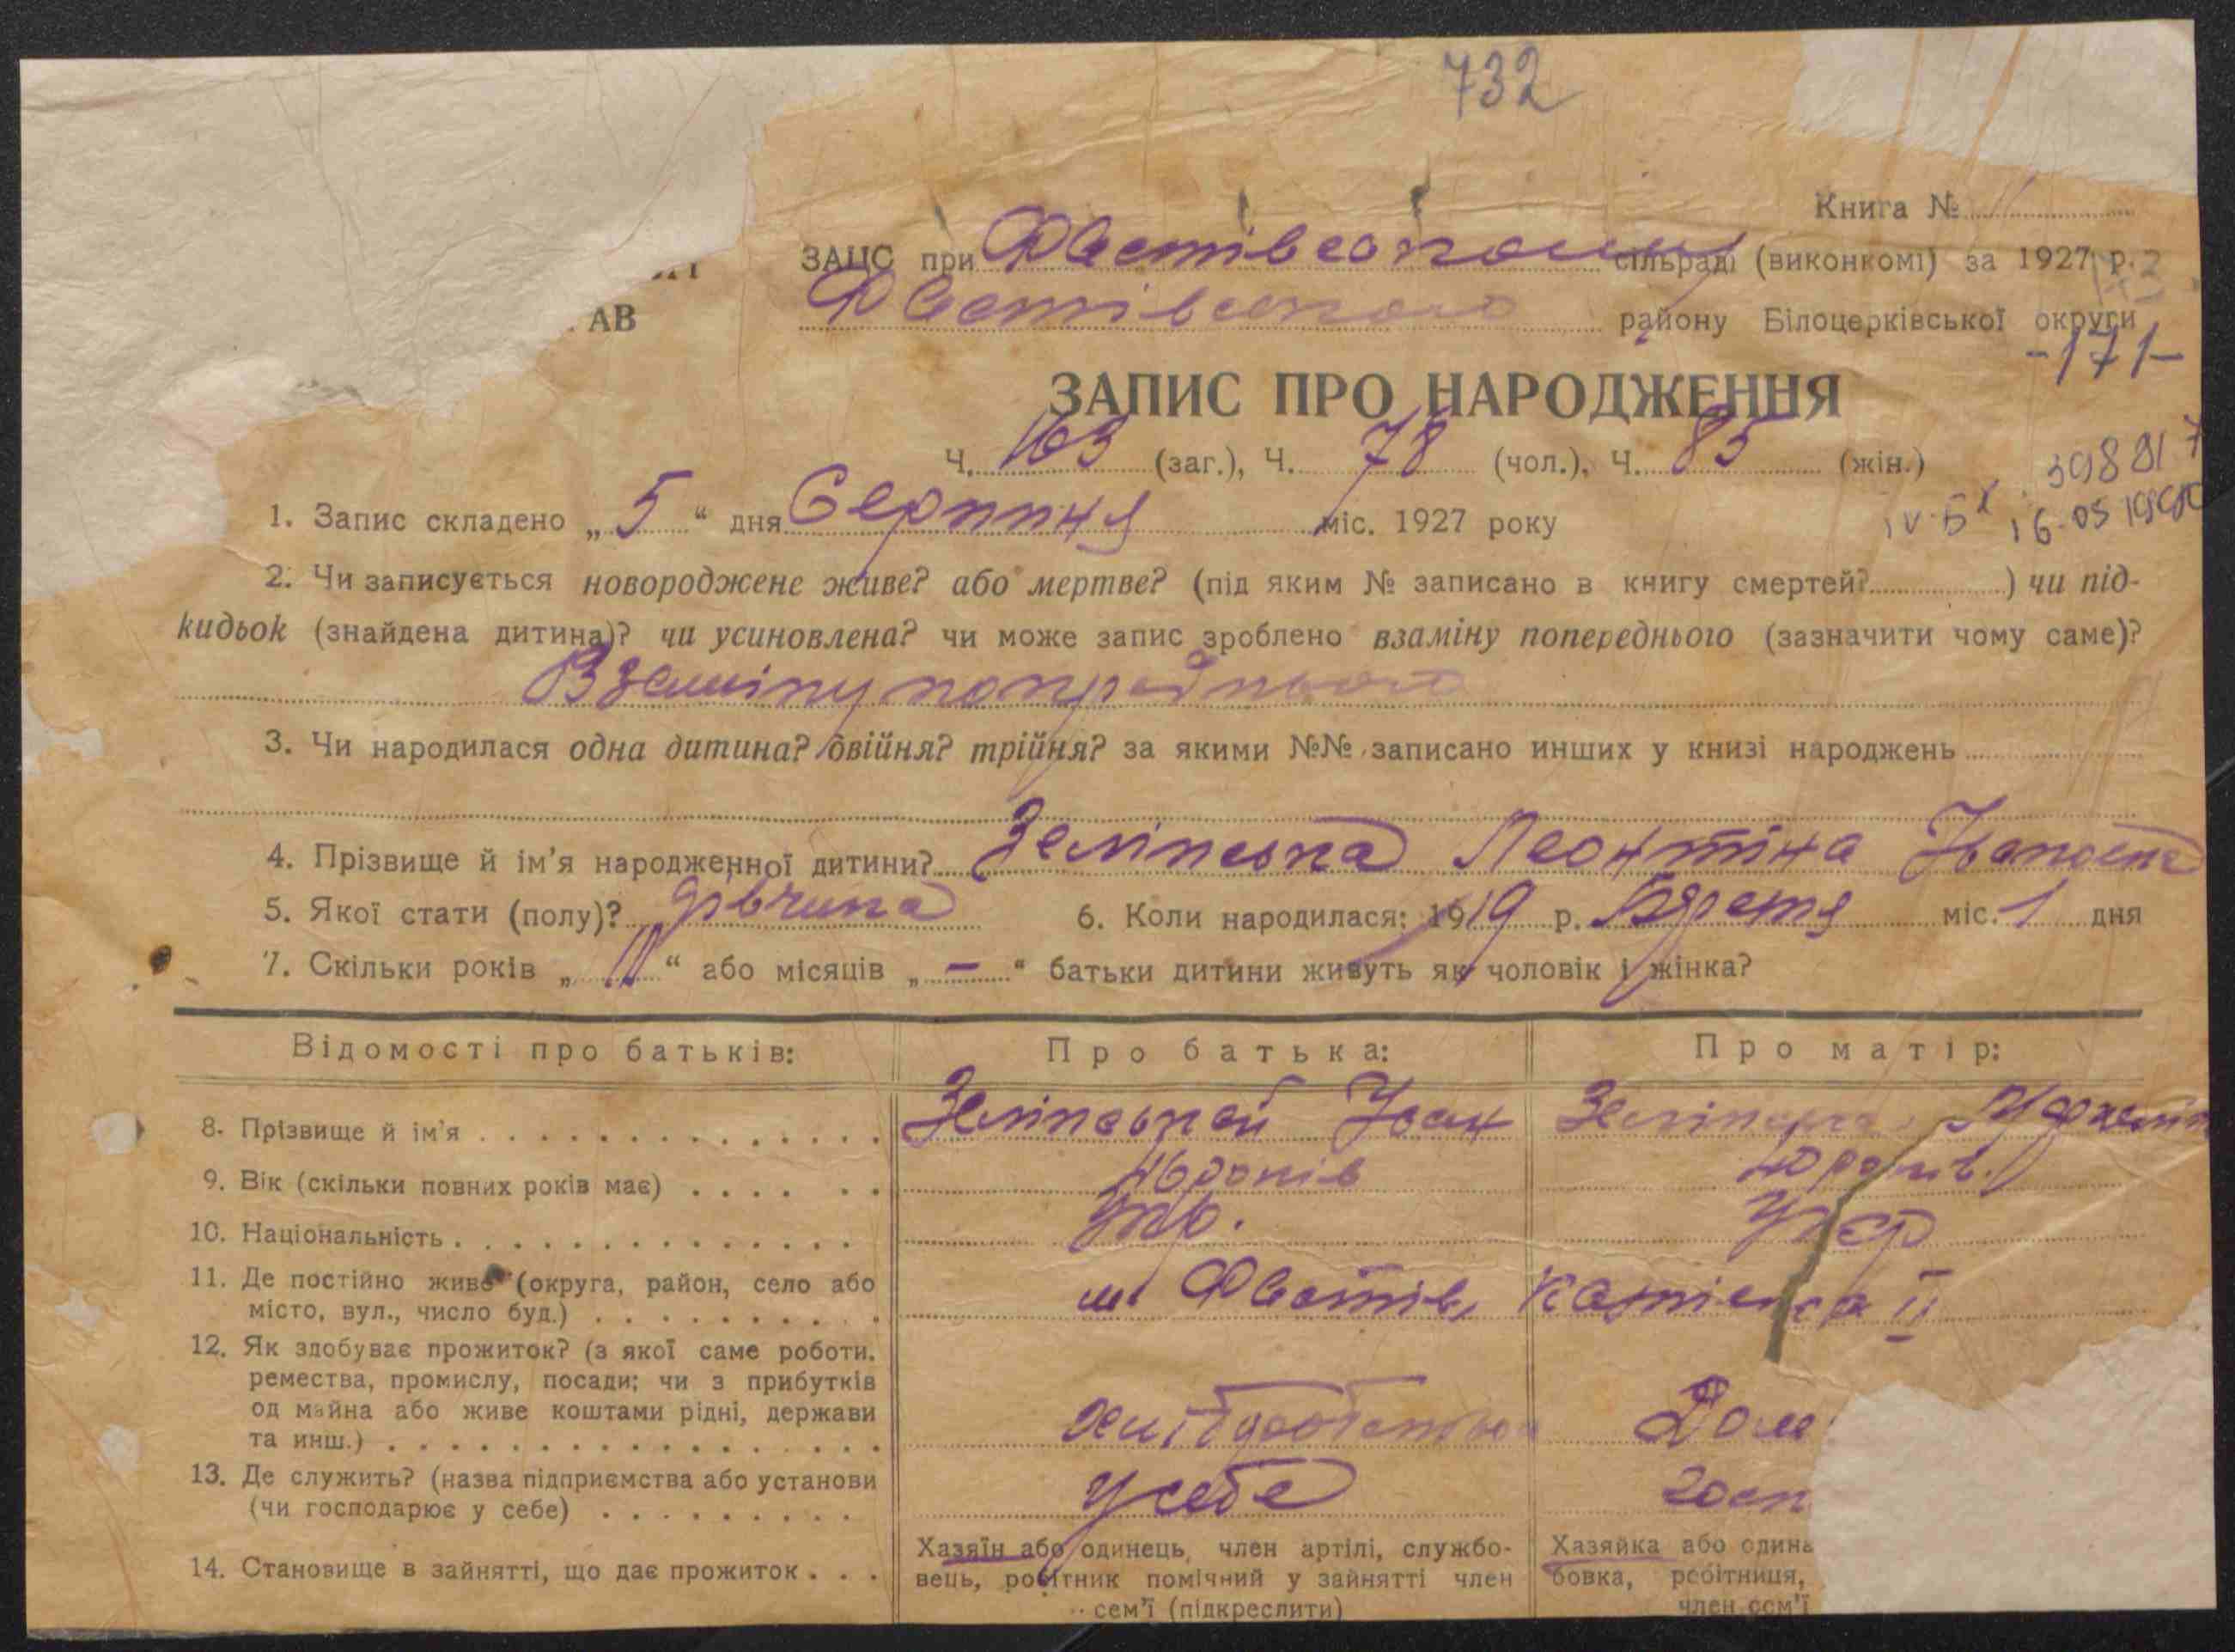 732
Книга №
ЗАЦС при Фастівському сільраді (виконкомі) за 1927 р.
АВ
Фастівського району Білоцерківської округи
-171-
ЗАПИС ПРО НАРОДЖЕННЯ
Ч. 163 (заг.), Ч. 78 (чол.), Ч. 85 (жін.)
1. Запис складено „ 5 “ дня Серпння міс. 1927 року
2. Чи записується новороджене живе? або мертве? (під яким № записано в книгу смертей? ) чи під-
кидьок (знайдена дитина)? чи усиновлена? чи може запис зроблено взаміну попереднього (зазначити чому саме)?
Взаміну попреднього
3. Чи народилася одна дитина? двійня? трійня? за якими №№ записано инших у книзі народжень
4. Прізвище й ім'я народженної дитини? Зелінська Леонтіна Івановна
5. Якої стати (полу)? дівчина 6. Коли народилася: 1919 р. Бярезтя міс. 1 дня
7. Скільки років „ “ або місяців „ – “ батьки дитини живуть як чоловік і жінка?
Відомості про батьків: Про батька: Про матір:
8. Прізвище й ім'я Зелінський Іван Зелінська
9. Вік (скільки повних років має) 46 років 40 років.
10. Національність Укр. Укр
11. Де постійно живе (округа, район, село або
місто, вул., число буд.) м. Фастів, II
12. Як здобуває прожиток? (з якої саме роботи,
ремества, промислу, посади; чи з прибутків
од майна або живе коштами рідні, держави
та инш.) Дом
13. Де служить? (назва підприємства або установи
(чи господарює у себе) у себе госп
14. Становище в зайнятті, що дає прожиток
Хазяїн або одинець, член артілі, службо-
вець, робітник помічний у зайнятті член
сем'ї (підкреслити)
Хазяйка або один
бовка, робітниця,
член сем'ї